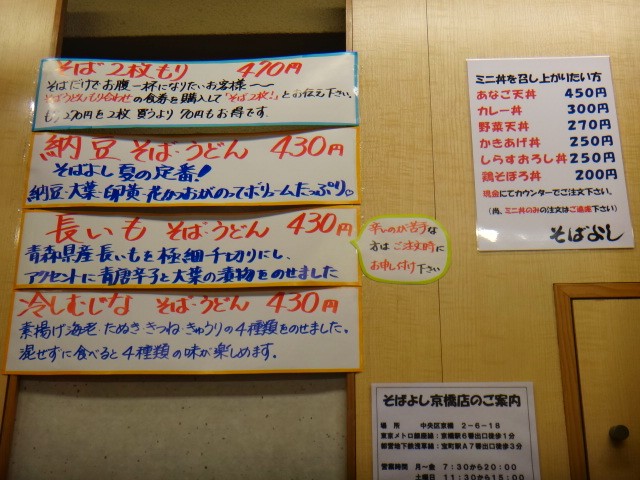 そば2枚もり 470円
そばだけでお腹一杯になりたいお客様へ
そばうどんもり合わせの食券を購入して「そば2枚!」とお伝え下さい。
もり270円を2枚買うより70円もお得です。
納豆 そば・うどん 430円
そばよし夏の定番!
納豆・大葉・卵黄・花かつおがのってボリュームたっぷり♡
長いも そば・うどん 430円
青森県産長いもを極細千切りにし、
アクセントに青唐辛子と大葉の漬物をのせました
辛いのが苦手な
方はご注文時に
お申し付け下さい
冷しむじな そば・うどん 430円
素揚げ海老・たぬき・きつね・きゅうりの4種類をのせました。
混ぜずに食べると4種類の味が楽しめます。
ミニ丼を召し上がりたい方
あなご天丼 450円
カレー丼 300円
野菜天丼 270円
かきあげ丼 250円
しらすおろし丼 250円
鶏そぼろ丼 200円
現金にてカウンターでご注文下さい。
(尚、ミニ丼のみの注文はご遠慮下さい)
そばよし
そばよし京橋店のご案内
場 所 中央区京橋 2-6-18
東京メトロ銀座線:京橋駅6番出口徒歩1分
都営地下鉄浅草線:宝町駅A7番出口徒歩3分
営業時間 月~金 7:30から20:00
土曜日 11:30から15:00